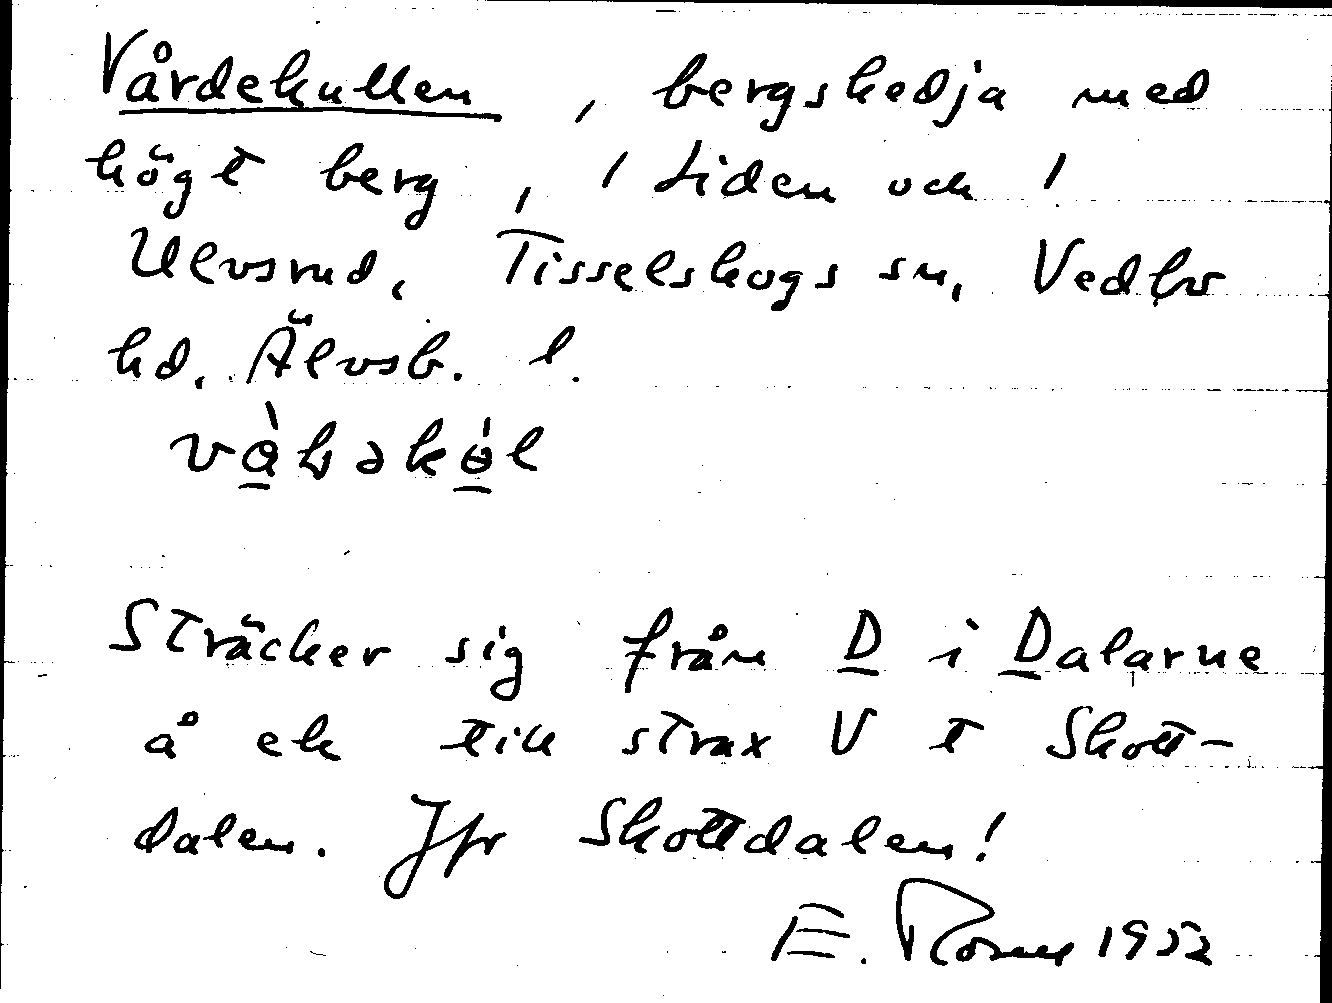 Vårdekullen, bergskedja med
högt berg, / Liden och /
Ulvsrud, Tisselskogs sn, Vedbo
hd. Älvsb. l.
Sträcker sig från D i Dalarne
å ek till strax V t Skott-
dalen. Jfr Skottdalen!
E. 1952